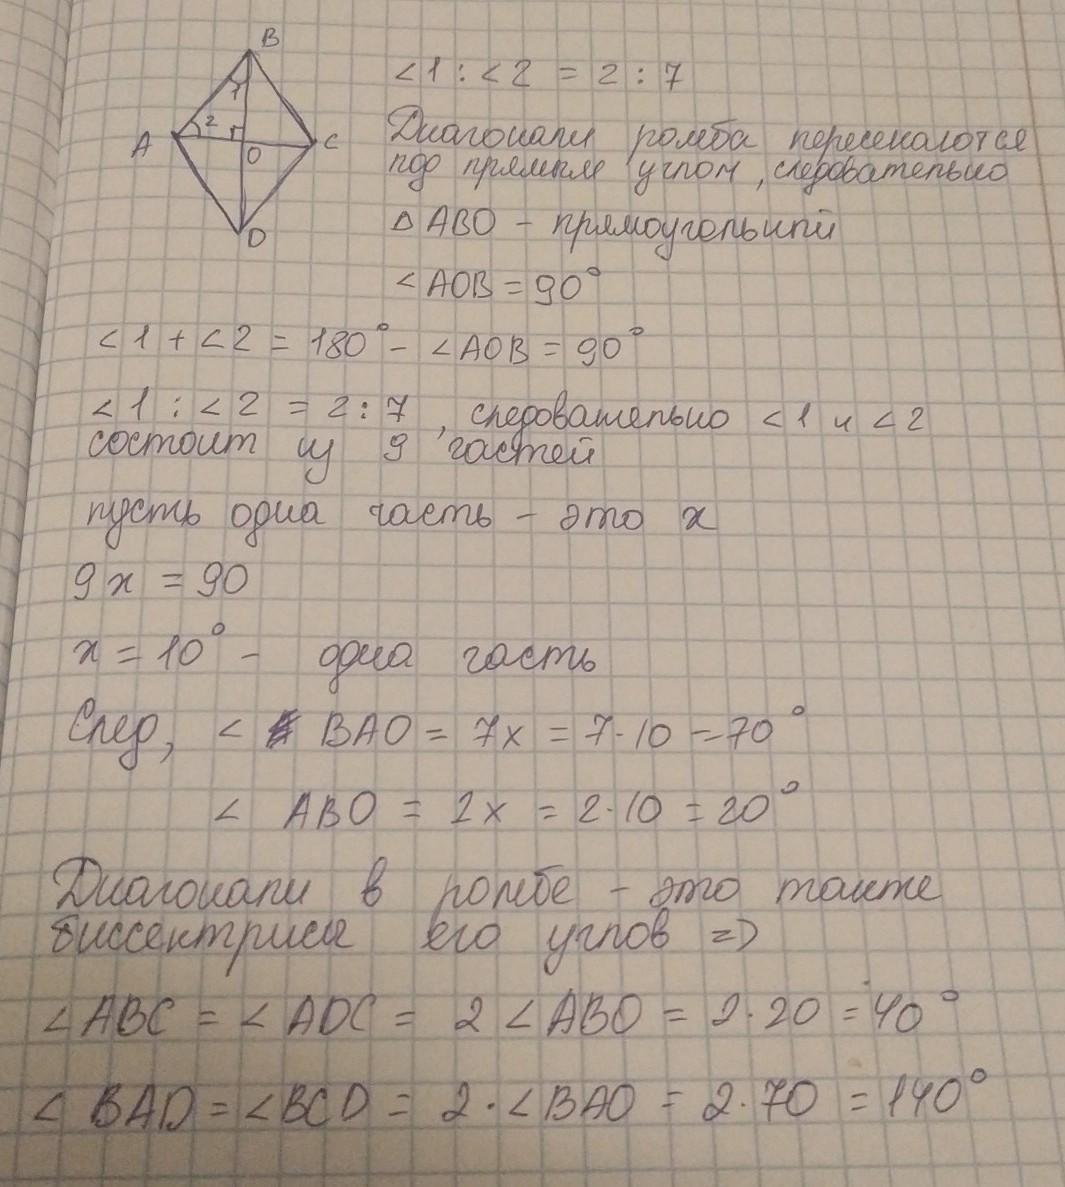 B
1
2
A
C
O
D
<1 : <2 = 2 : 7
Диагонали ромба пересекаются
под прямым углом, следовательно
△ ABO - прямоугольный
∠AOB = 90°
<1 + <2 = 180° - ∠AOB = 90°
<1 : <2 = 2 : 7, следовательно <1 и <2
состоит из 9 частей
пусть одна часть - это x
9x = 90
x = 10° - одна часть
След, ∠ BAO = 7x = 7·10 = 70°
∠ ABO = 2x = 2·10 = 20°
Диагонали в ромбе - это также
биссектрисы его углов =>
∠ABC = ∠ADC = 2∠ABO = 2·20 = 40°
∠BAD = ∠BCD = 2·∠BAO = 2·70 = 140°